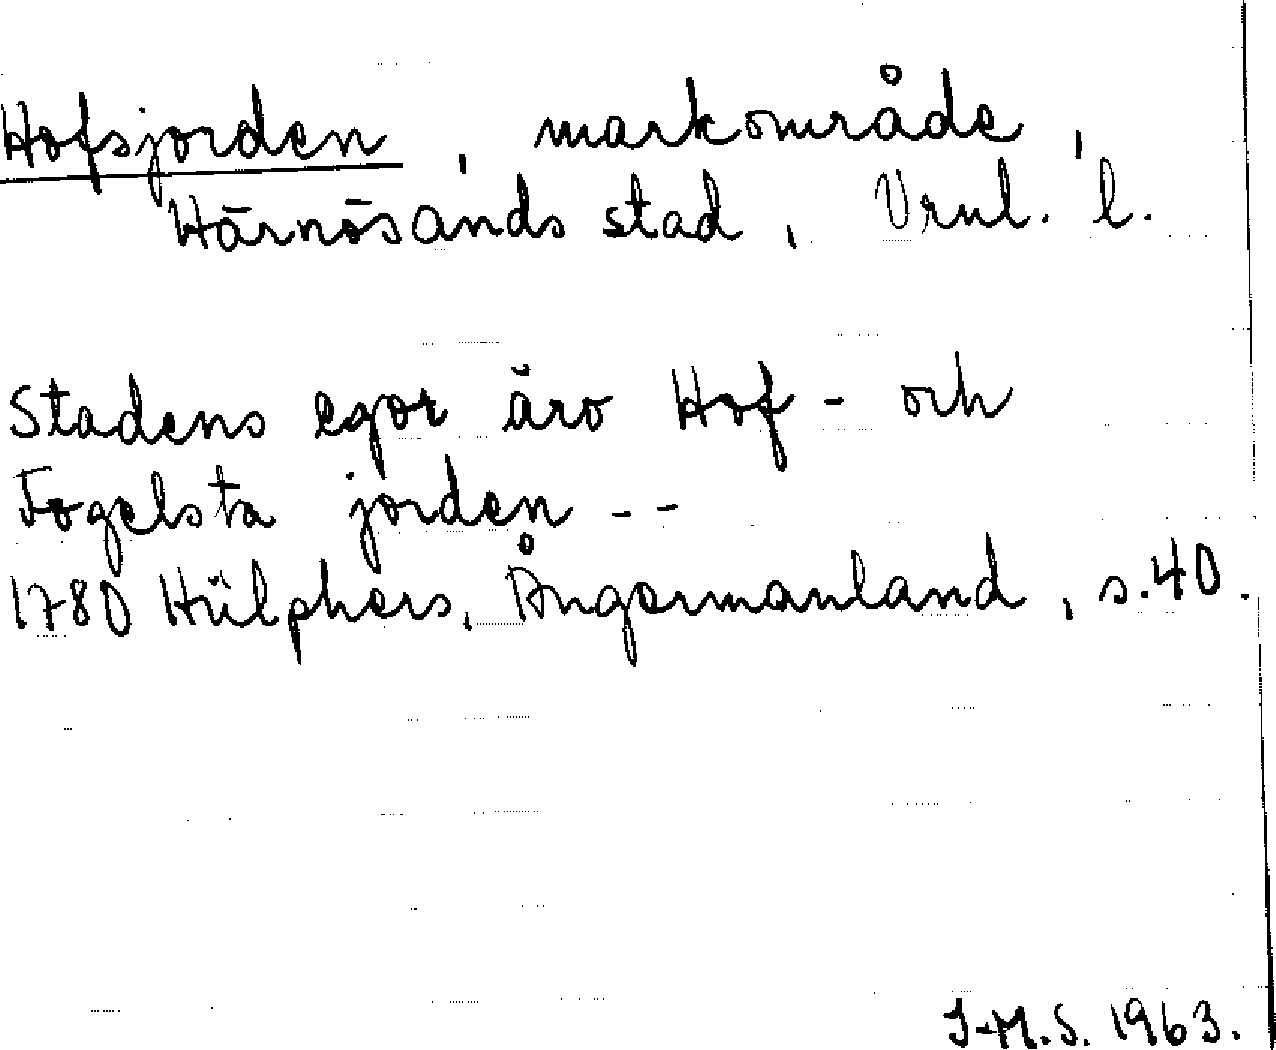 Hofsjorden, markområde,
Härnösands stad, Vrnl. l.
Stadens egor äro Hof- och
Fogelsta jorden --
1780 Hülphers, Ångermanland, s. 40.
J-M.S. 1963.